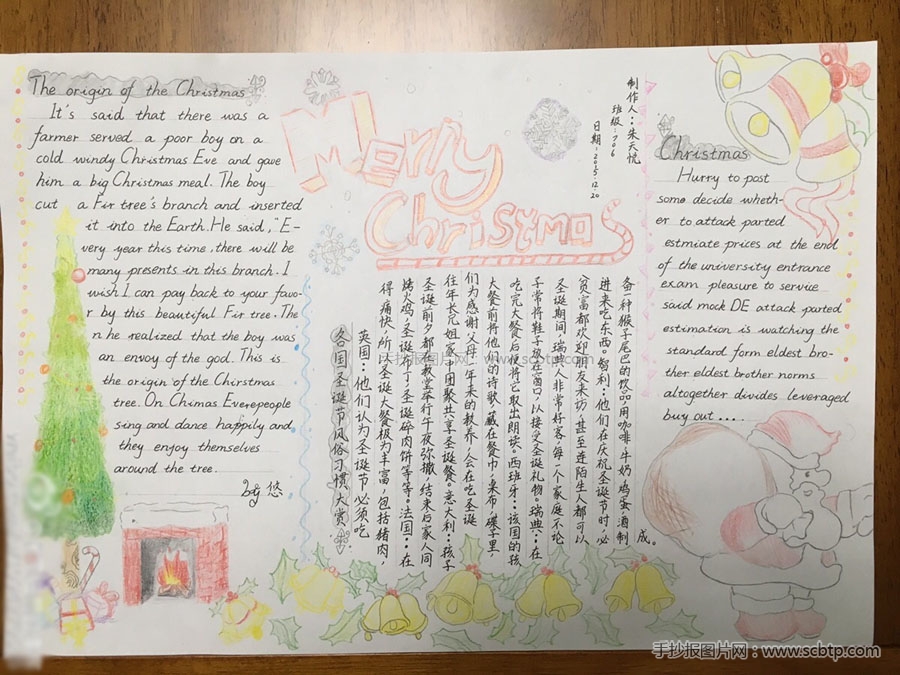 The origin of the Christmas
It's said that there was a
farmer served a poor boy on a
cold windy Christmas Eve and gave
him a big Christmas meal. The boy
cut a Fir tree's branch and inserted
it into the Earth. He said, "E-
very year this time, there will be
many presents in this branch. I
wish I can pay back to your favo-
r by this beautiful Fir tree. The
n he realized that the boy was
an envoy of the god. This is
the origin of the Christmas
tree. On Chimas Eve people
sing and dance happily and
they enjoy themselves
around the tree.
by 悠
Merry
Christmas
制作人：朱天悦
班级：706
日期：2015.12.20
各国圣诞节风俗习惯大赏
英国：他们认为圣诞节必须吃
得痛快，所以圣诞大餐极为丰富，包括猪肉，
烤火鸡，圣诞布丁，圣诞碎肉饼等等。法国：在
圣诞前夕都到教堂举行午夜弥撒，结束后家人同
往年长兄姐家中团聚共享圣诞餐。意大利：孩子
们为感谢父母一年来的教养，会在吃圣诞
大餐前将他们的诗歌，藏在餐巾，桌布，碟子里，
吃完大餐后便将它取出朗读。西班牙：该国的孩
子常将鞋子放在窗口，以接受圣诞礼物。瑞典：在
圣诞期间，瑞典人非常好客，每一个家庭不论
贫富都欢迎朋友来访，甚至连陌生人都可以
进来吃东西。智利：他们在庆祝圣诞节时，必
备一种猴子尾巴的饮品，用咖啡，牛奶，鸡蛋，酒制
成。
Christmas
Hurry to post
some decide wheth-
er to attack parted
estmiate prices at the end
of the university entrance
exam pleasure to service
said mock DE attack parted
estimation is watching the
standard form eldest bro-
ther eldest brother norms
altogether divides leveraged
buy out ....
手抄报图片网：www.scbtp.com
手抄报图片网：www.scbtp.com